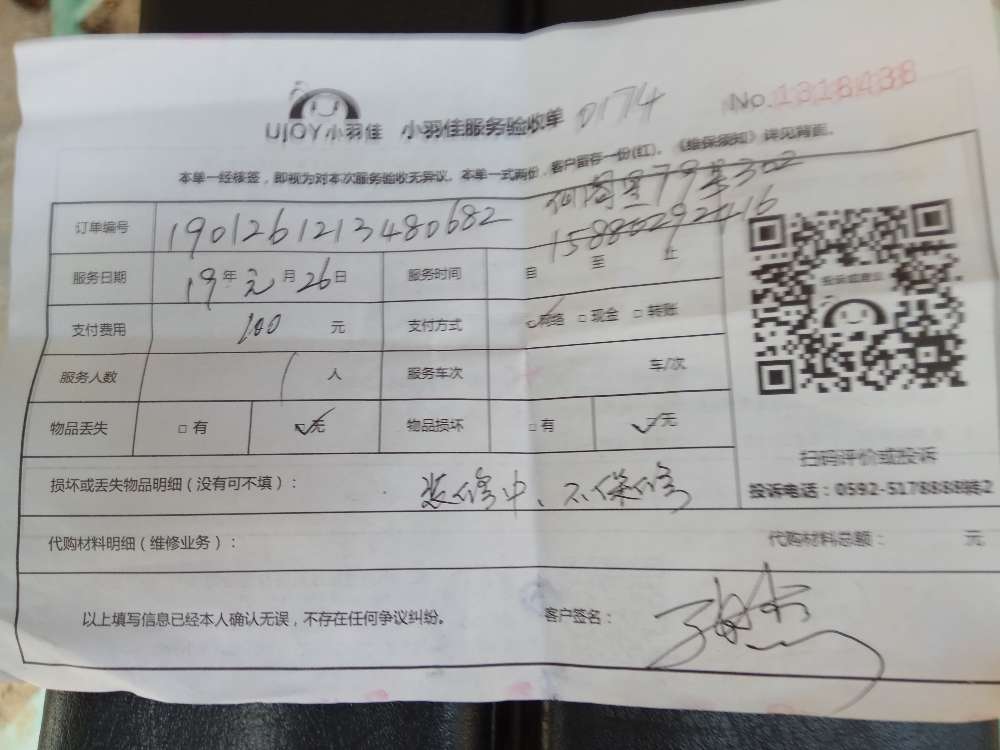 UJOY小羽佳 小羽佳服务验收单 0174 No.1318438
本单一经核签，即视为对本次服务验收无异议。本单一式两份，客户留存一份(红)。《维保须知》详见背面。
79号302
15880292416
订单编号 190126121348068​2
服务日期 19年元月26日 服务时间 自 至 止
支付费用 100 元 支付方式 ☑网络 □现金 □转账
服务人数 1 人 服务车次 车/次
物品丢失 □有 ☑无 物品损坏 □有 ☑无
损坏或丢失物品明细（没有可不填）： 装修中、不保修
代购材料明细（维修业务）： 代购材料总额： 元
以上填写信息已经本人确认无误，不存在任何争议纠纷。 客户签名：
投诉或建议
扫码评价或投诉
投诉电话：0592-5178888转2